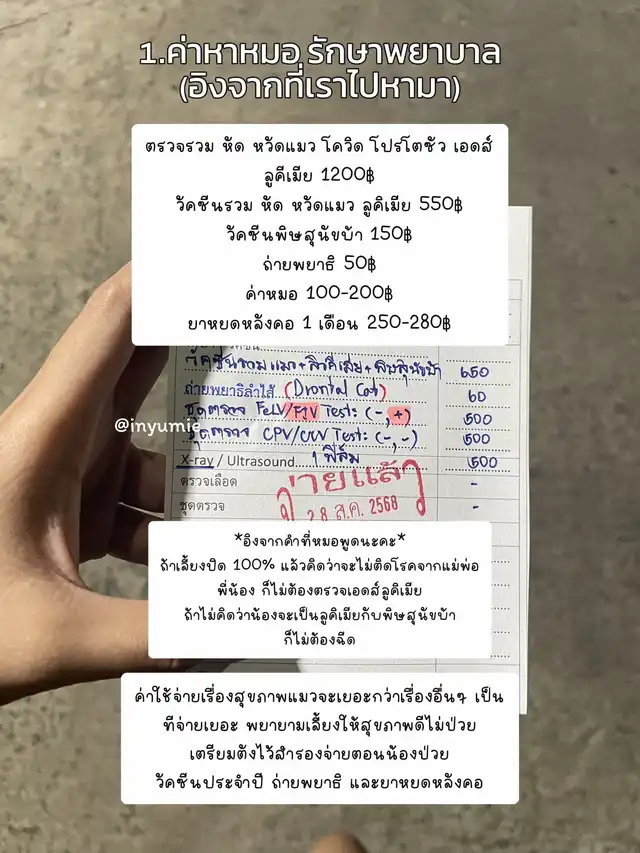 1.ค่าหาหมอ รักษาพยาบาล
(อิงจากที่เราไปหามา)
ตรวจรวม หัด หวัดแมว โควิด โปรโตซัว เอดส์
ลูคีเมีย 1200฿
วัคซีนรวม หัด หวัดแมว ลูคิเมีย 550฿
วัคซีนพิษสุนัขบ้า 150฿
ถ่ายพยาธิ 50฿
ค่าหมอ 100-200฿
ยาหยดหลังคอ 1 เดือน 250-280฿
วัคซีนรวมแมว+ลิวคีเมีย+พิษสุนัขบ้า 650
ถ่ายพยาธิลำไส้ (Drontal Cat) 60
ชุดตรวจ FeLV/FIV Test: (-,+) 500
@inyumie
ชุดตรวจ CPV/CCV Test: (-,-) 500
X-ray / Ultrasound 1 ฟิล์ม 500
ตรวจเลือด -
จ่ายแล้ว
ชุดตรวจ -
28 ส.ค. 2568
*อิงจากคำที่หมอพูดนะคะ*
ถ้าเลี้ยงปิด 100% แล้วคิดว่าจะไม่ติดโรคจากแม่พ่อ
พี่น้อง ก็ไม่ต้องตรวจเอดส์ลูคิเมีย
ถ้าไม่คิดว่าน้องจะเป็นลูคิเมียกับพิษสุนัขบ้า
ก็ไม่ต้องฉีด
ค่าใช้จ่ายเรื่องสุขภาพแมวจะเยอะกว่าเรื่องอื่นๆ เป็น
ทีจ่ายเยอะ พยายามเลี้ยงให้สุขภาพดีไม่ป่วย
เตรียมตังไว้สำรองจ่ายตอนน้องป่วย
วัคซีนประจำปี ถ่ายพยาธิ และยาหยดหลังคอ